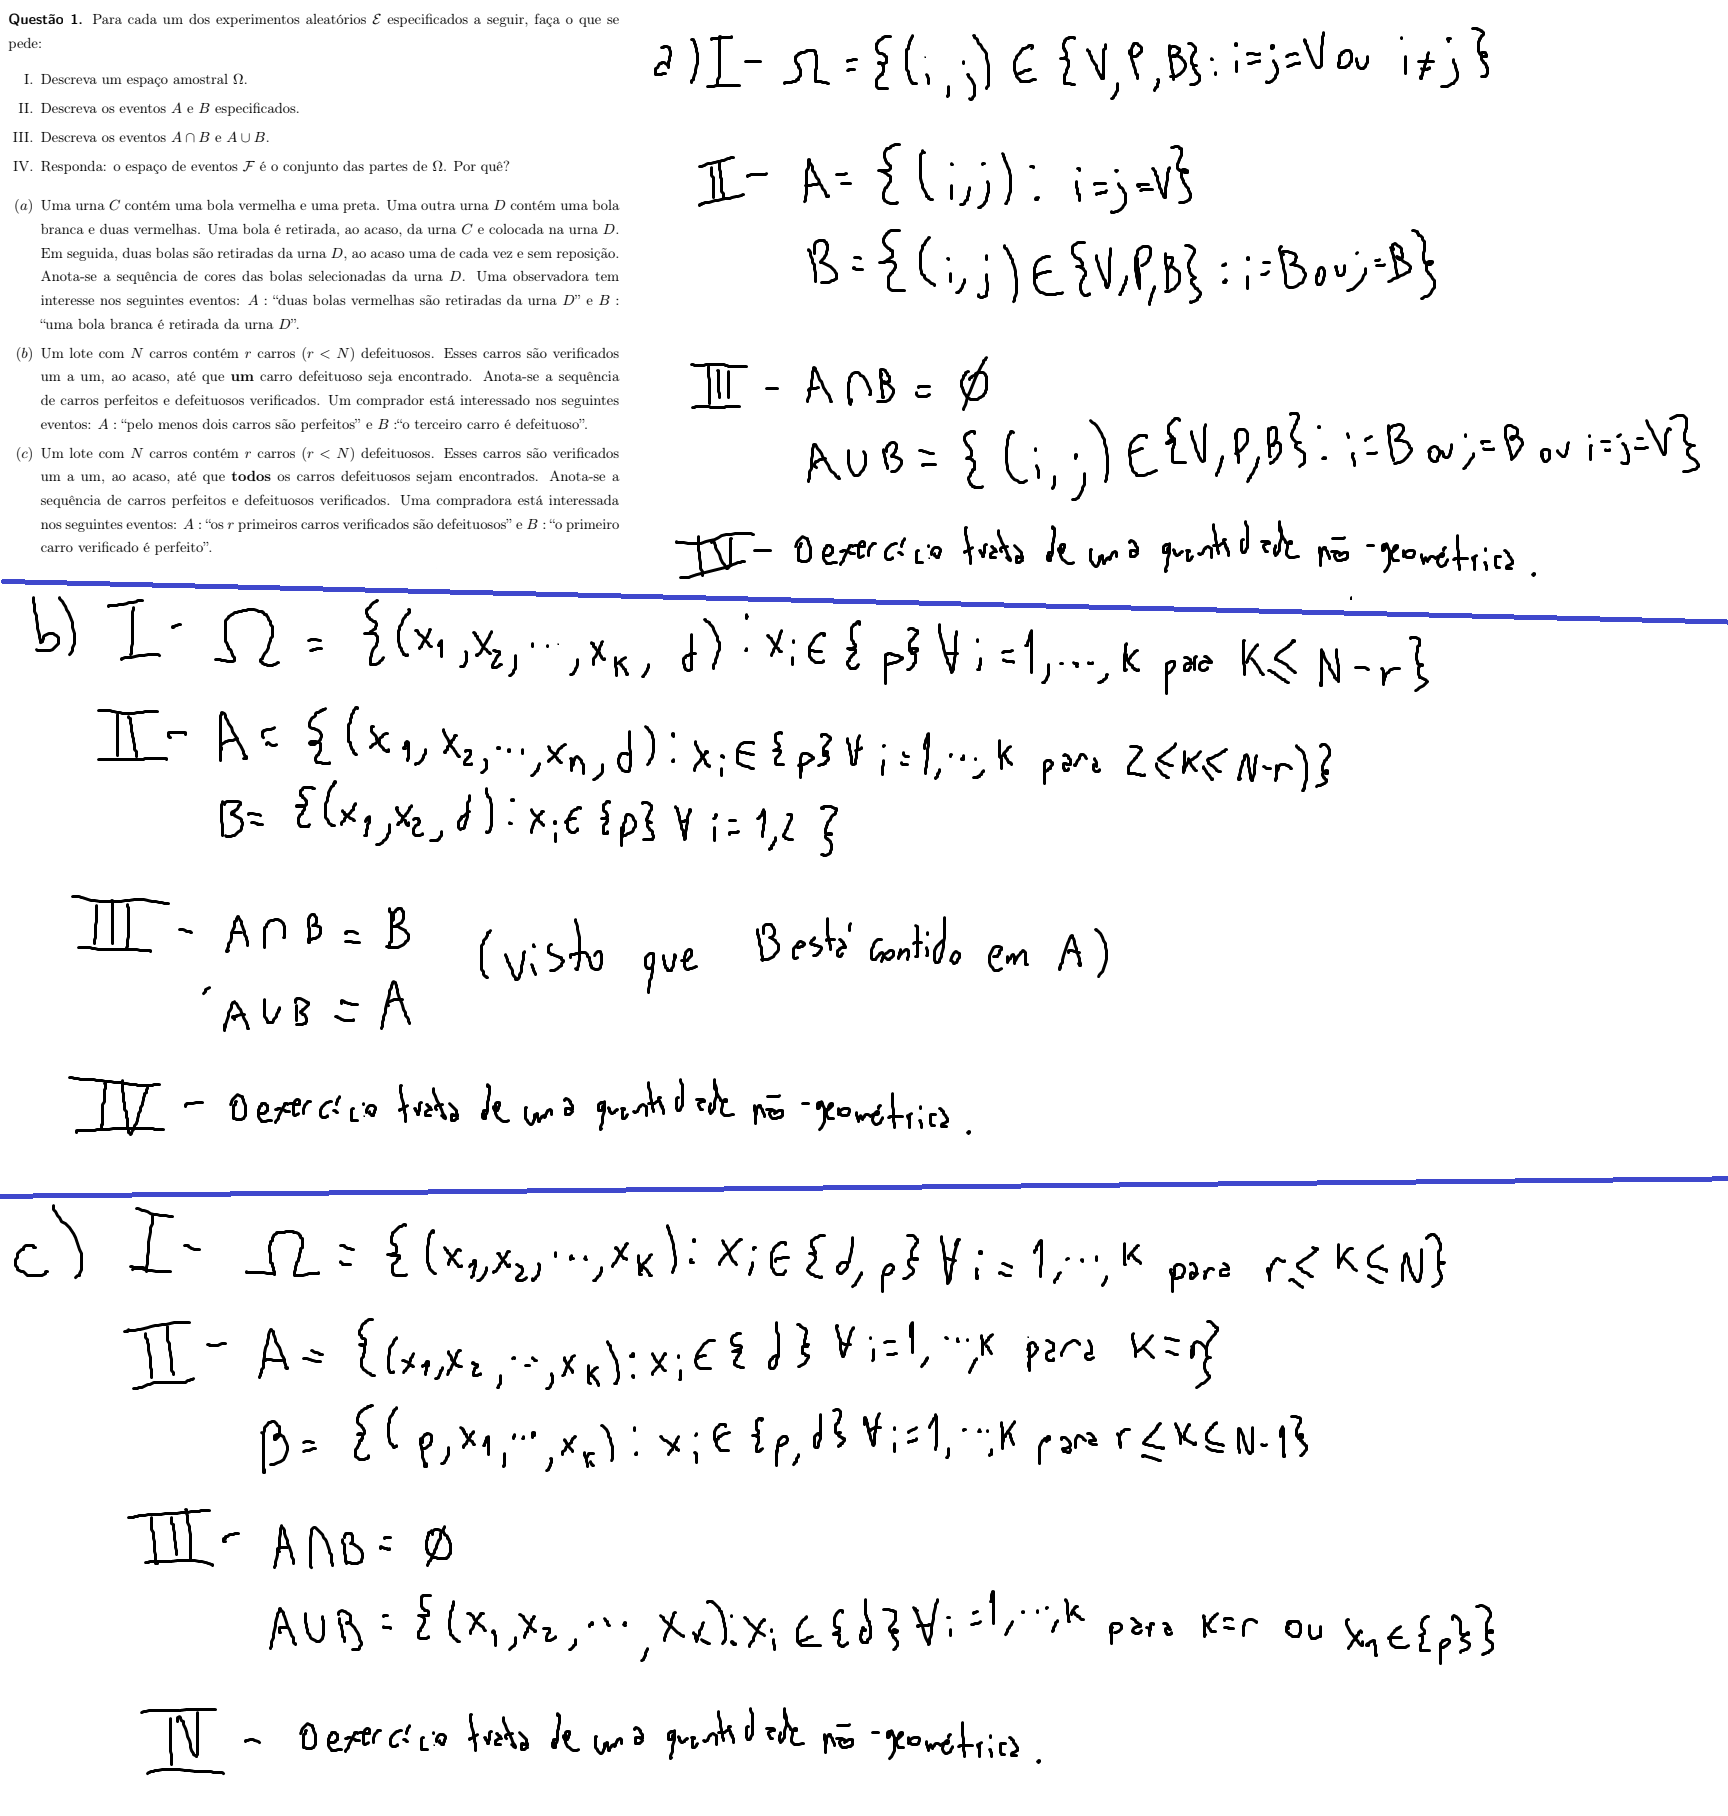 Questão 1. Para cada um dos experimentos aleatórios ℰ especificados a seguir, faça o que se
pede:
I. Descreva um espaço amostral Ω.
II. Descreva os eventos A e B especificados.
III. Descreva os eventos A ∩ B e A ∪ B.
IV. Responda: o espaço de eventos ℱ é o conjunto das partes de Ω. Por quê?
(a) Uma urna C contém uma bola vermelha e uma preta. Uma outra urna D contém uma bola
branca e duas vermelhas. Uma bola é retirada, ao acaso, da urna C e colocada na urna D.
Em seguida, duas bolas são retiradas da urna D, ao acaso uma de cada vez e sem reposição.
Anota-se a sequência de cores das bolas selecionadas da urna D. Uma observadora tem
interesse nos seguintes eventos: A : “duas bolas vermelhas são retiradas da urna D” e B :
“uma bola branca é retirada da urna D”.
(b) Um lote com N carros contém r carros (r < N) defeituosos. Esses carros são verificados
um a um, ao acaso, até que um carro defeituoso seja encontrado. Anota-se a sequência
de carros perfeitos e defeituosos verificados. Um comprador está interessado nos seguintes
eventos: A : “pelo menos dois carros são perfeitos” e B :“o terceiro carro é defeituoso”.
(c) Um lote com N carros contém r carros (r < N) defeituosos. Esses carros são verificados
um a um, ao acaso, até que todos os carros defeituosos sejam encontrados. Anota-se a
sequência de carros perfeitos e defeituosos verificados. Uma compradora está interessada
nos seguintes eventos: A : “os r primeiros carros verificados são defeituosos” e B : “o primeiro
carro verificado é perfeito”.
a) I - Ω = {(i, j) ∈ {V, P, B}: i=j=V ou i≠j}
II - A = {(i,j): i=j=V}
B = {(i,j) ∈ {V,P,B} : i=B ou j=B}
III - A ∩ B = ∅
A ∪ B = {(i,j) ∈ {V,P,B}: i=B ou j=B ou i=j=V}
IV - O exercício trata de uma quantidade não-geométrica.
b) I - Ω = {(x₁, x₂, ..., x_K, d) : x_i ∈ {p} ∀ i = 1, ..., K para K ≤ N - r}
II - A = {(x₁, x₂, ..., x_n, d) : x_i ∈ {p} ∀ i = 1, ..., K para 2 ≤ K ≤ N-r)}
B = {(x₁, x₂, d) : x_i ∈ {p} ∀ i = 1,2}
III - A ∩ B = B (visto que B está contido em A)
A ∪ B = A
IV - O exercício trata de uma quantidade não-geométrica.
c) I - Ω = {(x₁, x₂, ..., x_K) : x_i ∈ {d, p} ∀ i = 1, ..., K para r ≤ K ≤ N}
II - A = {(x₁, x₂, ..., x_K) : x_i ∈ {d} ∀ i = 1, ..., K para K = r}
B = {(p, x₁, ..., x_K) : x_i ∈ {p, d} ∀ i = 1, ..., K para r ≤ K ≤ N-1}
III - A ∩ B = ∅
A ∪ B = {(x₁, x₂, ..., x_K) : x_i ∈ {d} ∀ i = 1, ..., K para K = r ou x₁ ∈ {p}}
IV - O exercício trata de uma quantidade não-geométrica.